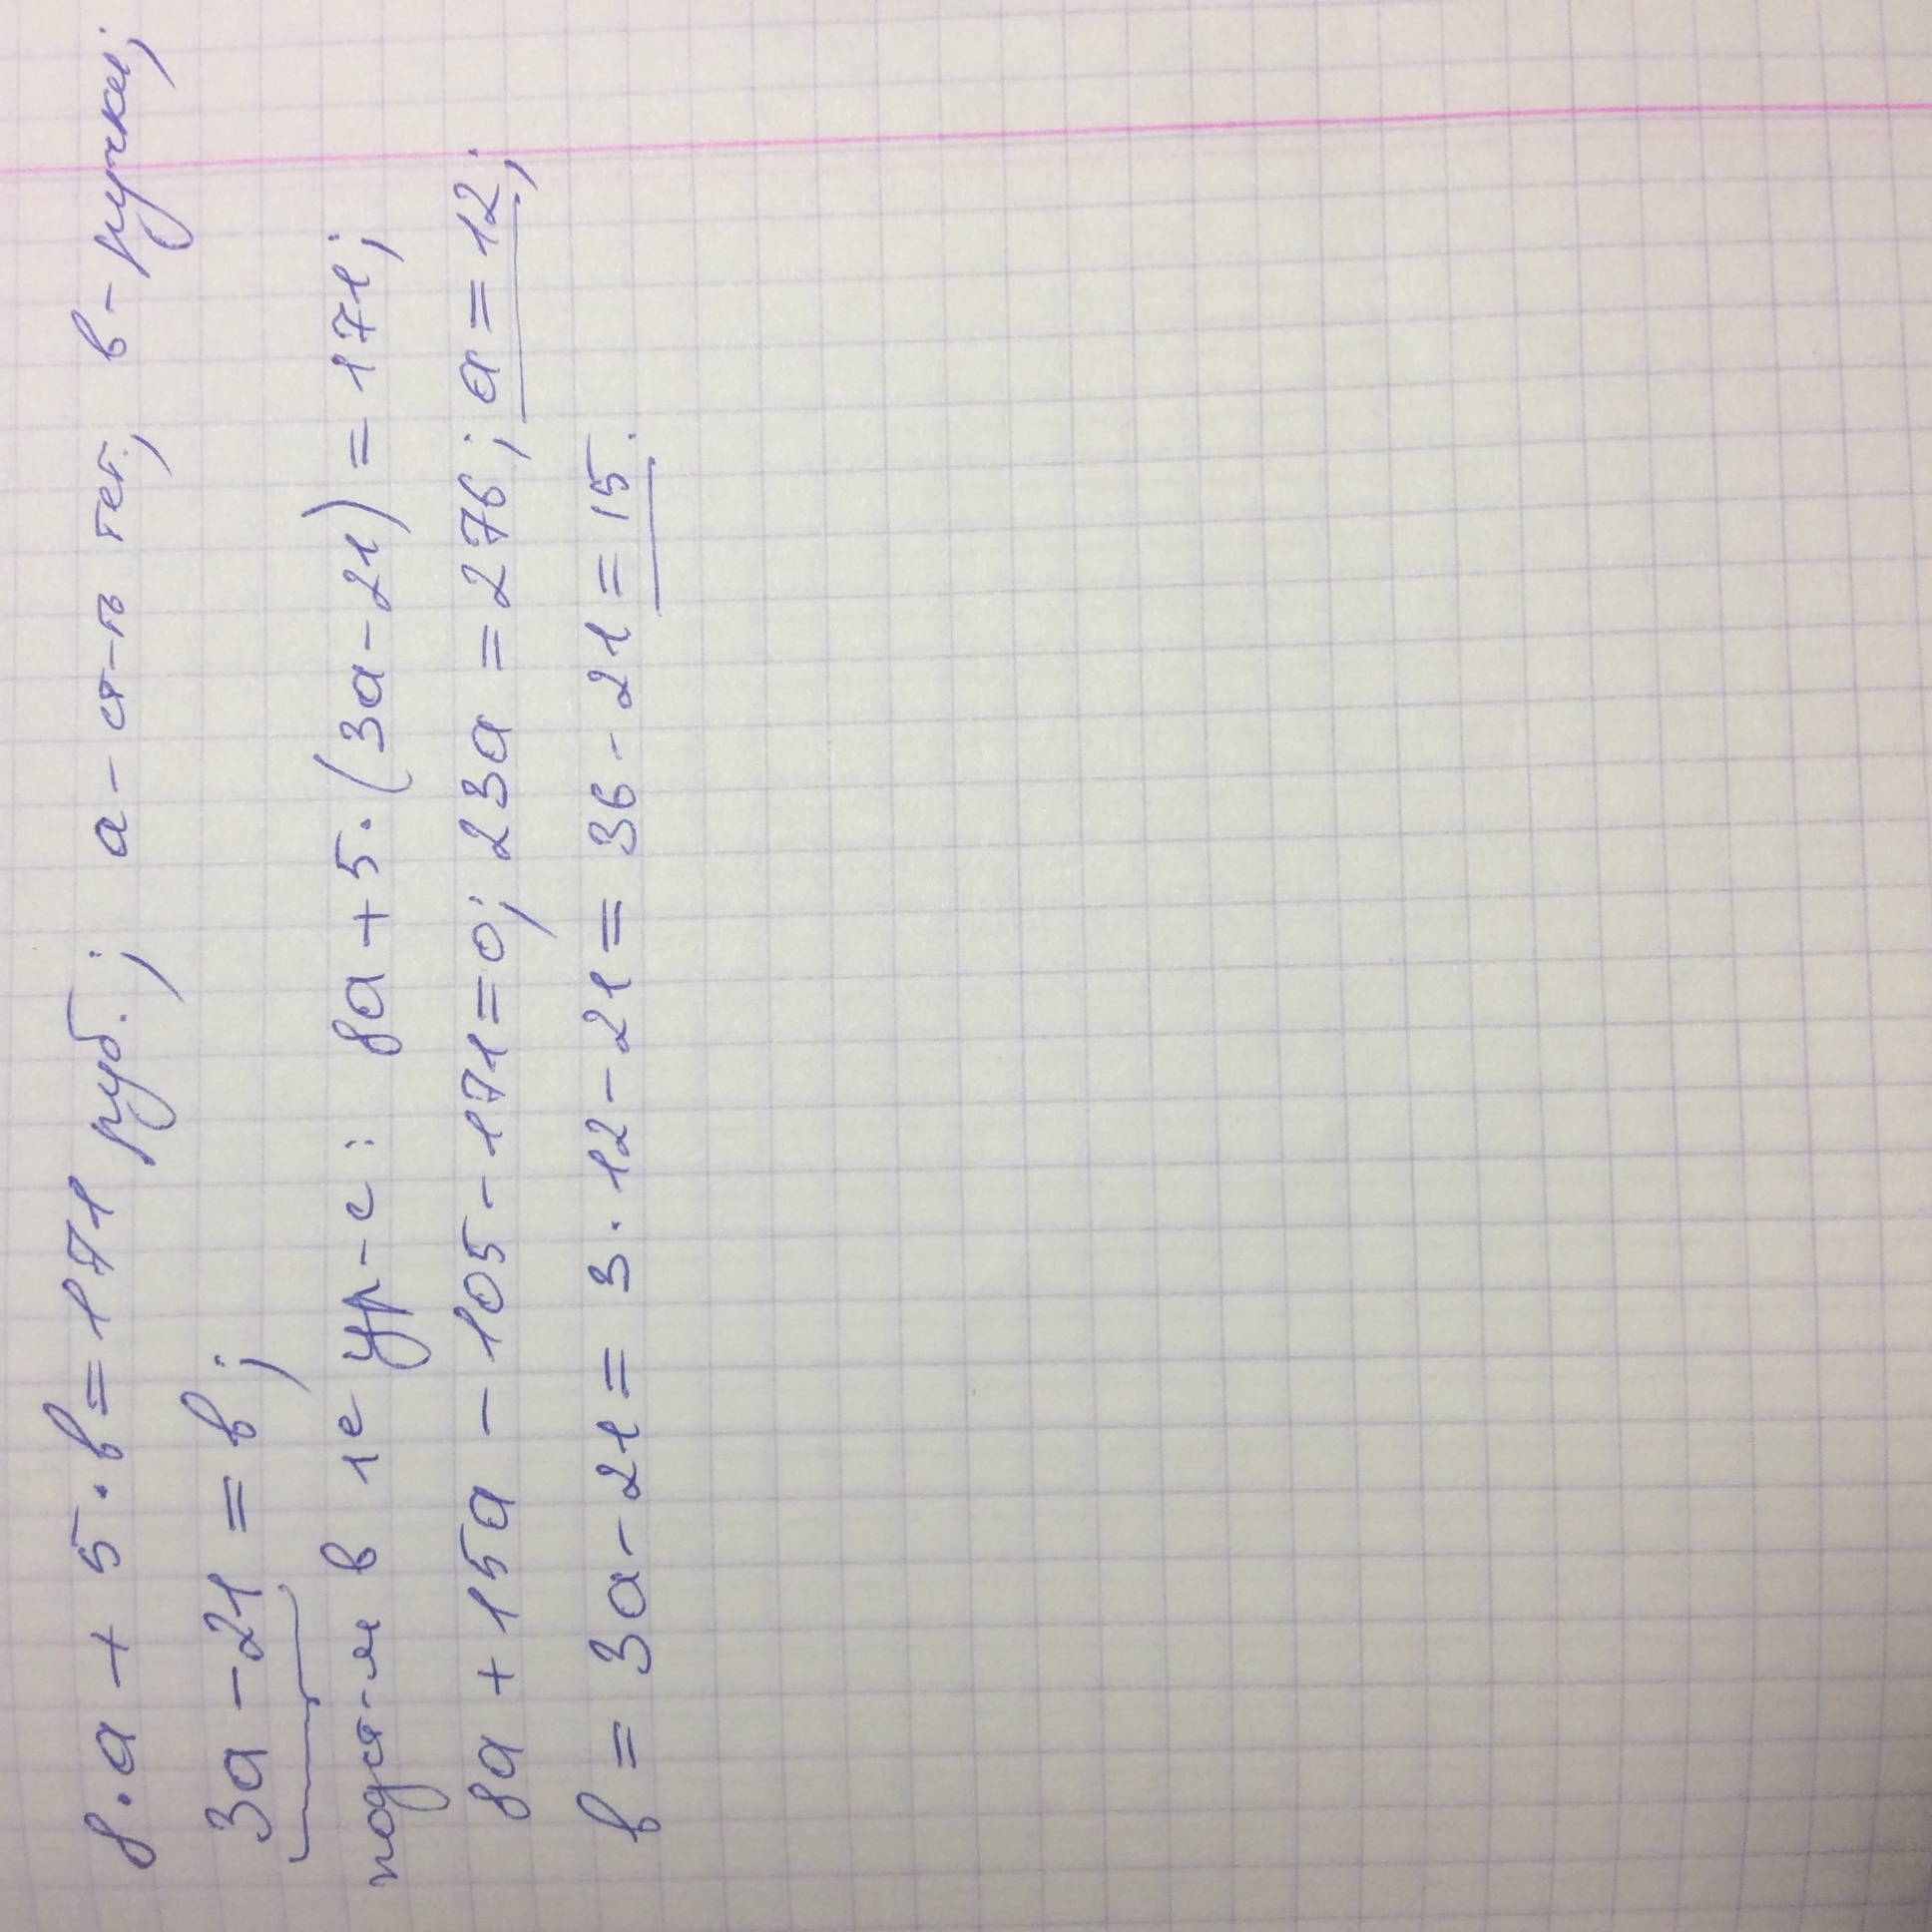 8·a + 5·в = 171 руб.; a - ст-ть тет.; в - ручки;
3a - 21 = в;
подст-м в 1е ур-е: 8a + 5·(3a - 21) = 171;
8a + 15a - 105 - 171 = 0; 23a = 276; a = 12;
в = 3a - 21 = 3·12 - 21 = 36 - 21 = 15.